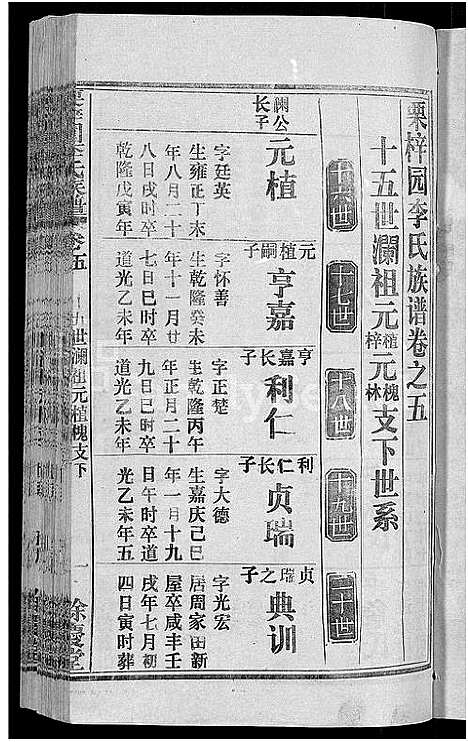 栗梓园李氏族谱卷之五
十五世瀾祖元植槐元梓林支下世系
十六世
十七世
十八世
十九世
二十世
瀾公长子
元植
字廷英
生雍正丁未
年八月二十
八日戌时卒
乾隆戊寅年
元植嗣子
亨嘉
字怀善
生乾隆癸未
年十一月廿
七日巳时卒
道光乙未年
亨嘉长子
利仁
字正楚
生乾隆丙午
年正月二十
日丑时卒道
光乙未年
利仁长子
贞瑞
字大德
生嘉庆己巳
年一月十九
日午时卒道
光乙未年五
贞瑞之子
典训
字光宏
居周家田新
屋卒咸丰壬
戌年七月初
四日寅时葬
卷五
十五世瀾祖元植槐支下
一
馀庆堂